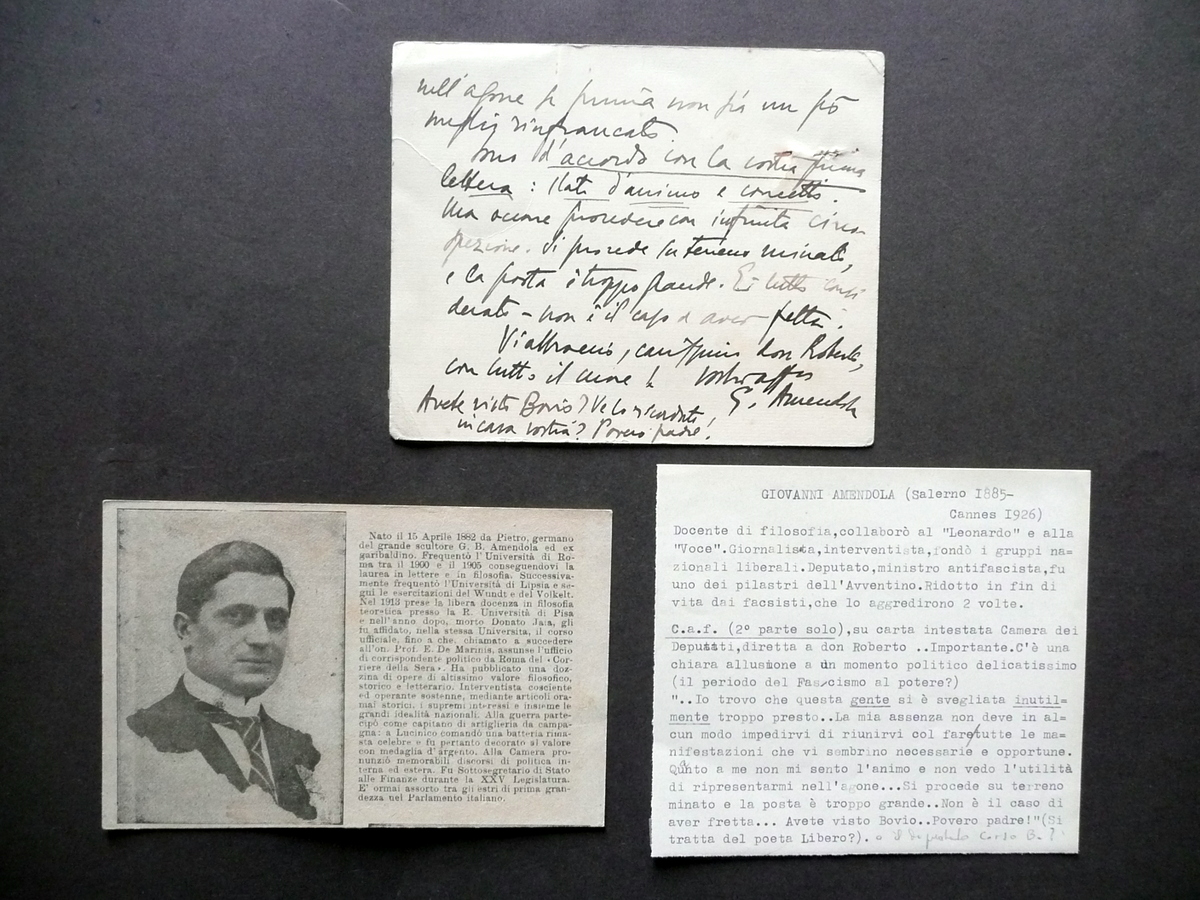 nell'agone se prima non sia un po'
meglio rinfrancato.
Sono d'accordo con la vostra prima
lettera : stato d'animo e concetti.
Ma occorre procedere con infinita circo-
spezione. Si procede su terreno minato,
e la posta è troppo grande. E, tutto consi
derato – non è il caso d'aver fretta.
Vi abbraccio, carissimo don Roberto,
con tutto il cuore! vostro aff
G. Amendola
Avete visto Bovio? Ve lo ricordate
in casa vostra? Povero padre!
Nato il 15 Aprile 1882 da Pietro, germano
del grande scultore G. B. Amendola ed ex
garibaldino. Frequentò l'Università di Ro-
ma tra il 1900 e il 1905 conseguendovi la
laurea in lettere e in filosofia. Successiva-
mente frequentò l'Università di Lipsia e se-
guì le esercitazioni del Wundt e del Volkelt.
Nel 1913 prese la libera docenza in filosofia
teoretica presso la R. Università di Pisa
e nell'anno dopo, morto Donato Jaia, gli
fu affidato, nella stessa Università, il corso
ufficiale, fino a che, chiamato a succedere
all'on. Prof. E. De Marinis, assunse l'ufficio
di corrispondente politico da Roma del «Cor-
riere della Sera». Ha pubblicato una doz-
zina di opere di altissimo valore filosofico,
storico e letterario. Interventista cosciente
ed operante sostenne, mediante articoli ora-
mai storici, i supremi interessi e insieme le
grandi idealità nazionali. Alla guerra parte-
cipò come capitano di artiglieria da campa-
gna: a Lucinico comandò una batteria rima-
sta celebre e fu pertanto decorato al valore
con medaglia d'argento. Alla Camera pro-
nunziò memorabili discorsi di politica in-
terna ed estera. Fu Sottosegretario di Stato
alle Finanze durante la XXV Legislatura.
E' ormai assorto tra gli astri di prima gran-
dezza nel Parlamento italiano.
GIOVANNI AMENDOLA (Salerno I885-
Cannes I926)
Docente di filosofia,collaborò al "Leonardo" e alla
"Voce".Giornalista,interventista,fondò i gruppi na=
zionali liberali.Deputato,ministro antifascista,fu
uno dei pilastri dell'Avventino.Ridotto in fin di
vita dai facsisti,che lo aggredirono 2 volte.
C.a.f. (2° parte solo),su carta intestata Camera dei
Deputati,diretta a don Roberto ..Importante.C'è una
chiara allusione a un momento politico delicatissimo
(il periodo del Fascismo al potere?)
"..Io trovo che questa gente si è svegliata inutil=
mente troppo presto..La mia assenza non deve in al=
cun modo impedirvi di riunirvi col fare/tutte le ma=
nifestazioni che vi sembrino necessarie e opportune.
Quanto a me non mi sento l'animo e non vedo l'utilità
di ripresentarmi nell'agone...Si procede su terreno
minato e la posta è troppo grande..Non è il caso di
aver fretta... Avete visto Bovio..Povero padre!"(Si
tratta del poeta Libero?). o il deputato Corso B.?